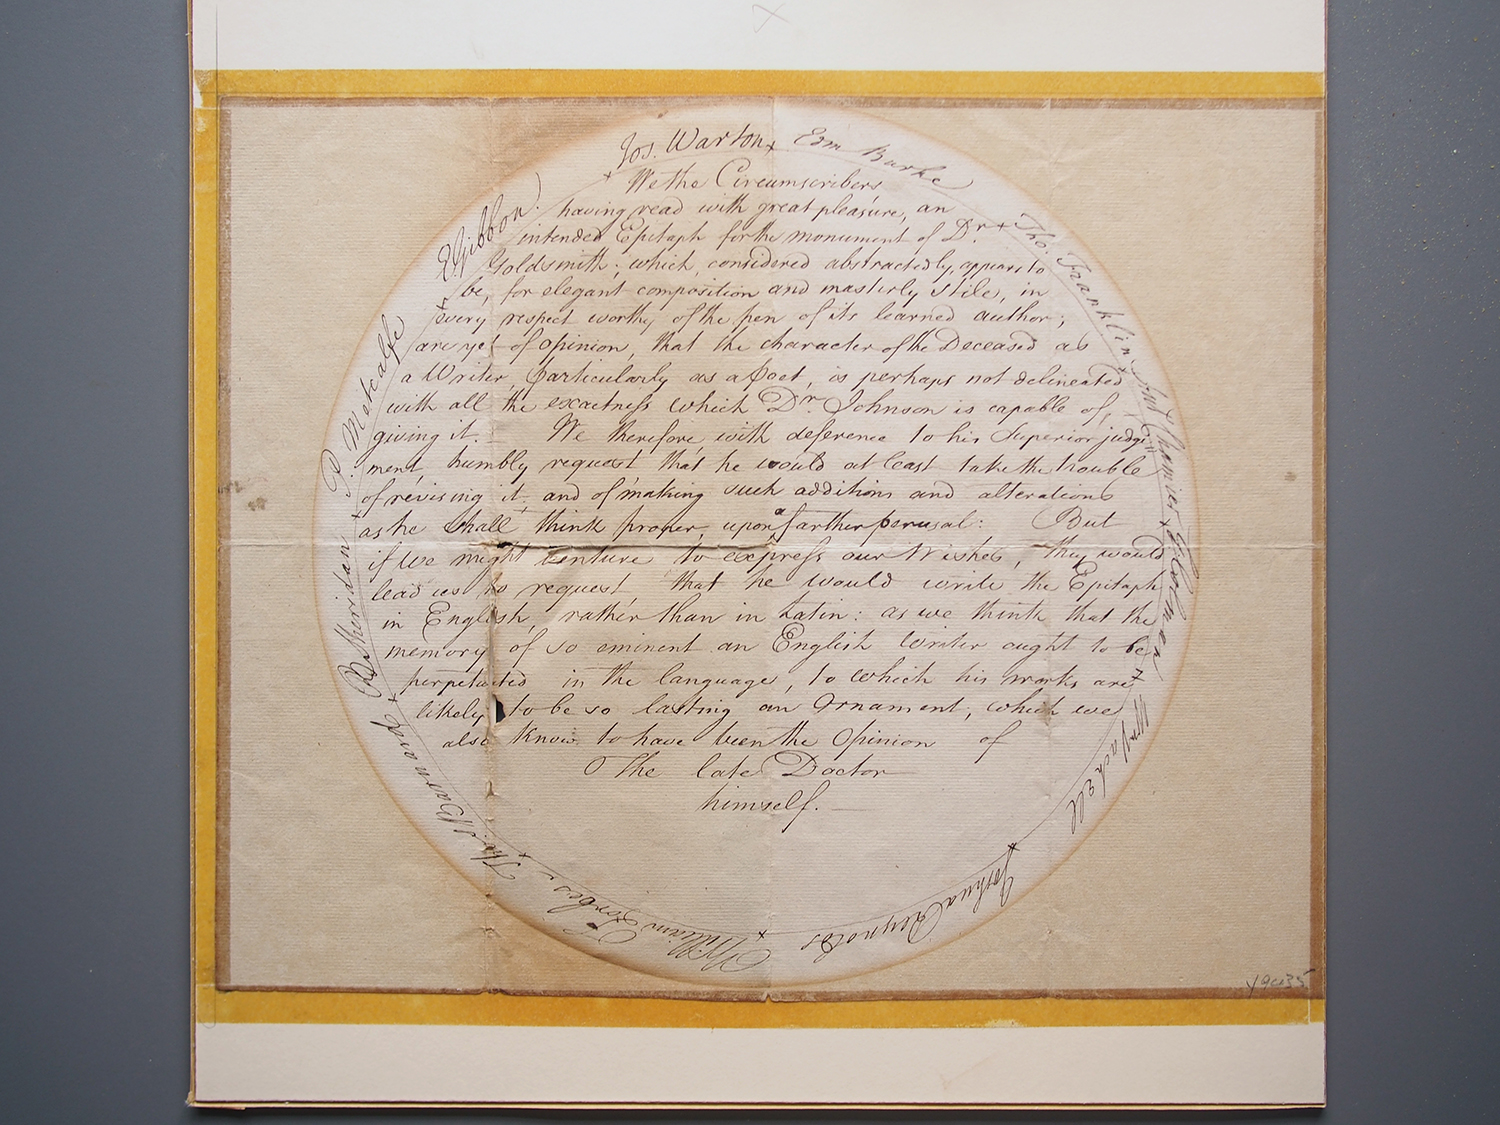 Jos. Warton × Edm Burke
× Tho. Franklin
Ant Chamier
× G Colman
× Wm Vachell
× Joshua Reynolds
× William Forbes
× Tho. Barnard
× R B Sheridan
× P. Metcalfe
× E Gibbon
We the Circumscribers
having read with great pleasure, an
intended Epitaph for the monument of Dr.
Goldsmith; which, considered abstractedly, appears to
be, for elegant composition and masterly stile, in
every respect worthy of the pen of its learned author;
are yet of opinion, that the character of the Deceased as
a Writer, particularly as a poet, is perhaps not delineated
with all the exactness which Dr. Johnson is capable of
giving it. We therefore, with deference to his Superior judge
ment, humbly request that he would at least take the trouble
of revising it, and of making such additions and alterations
as he shall think proper, upon a farther perusal: But
if we might venture to express our Wishes, they would
lead us to request, that he would write the Epitaph
in English, rather than in Latin: as we think that the
memory of so eminent an English Writer ought to be
perpetuated in the language, to which his works are
likely to be so lasting an Ornament, which we
also know to have been the Opinion of
The late Doctor
himself.
Y9635